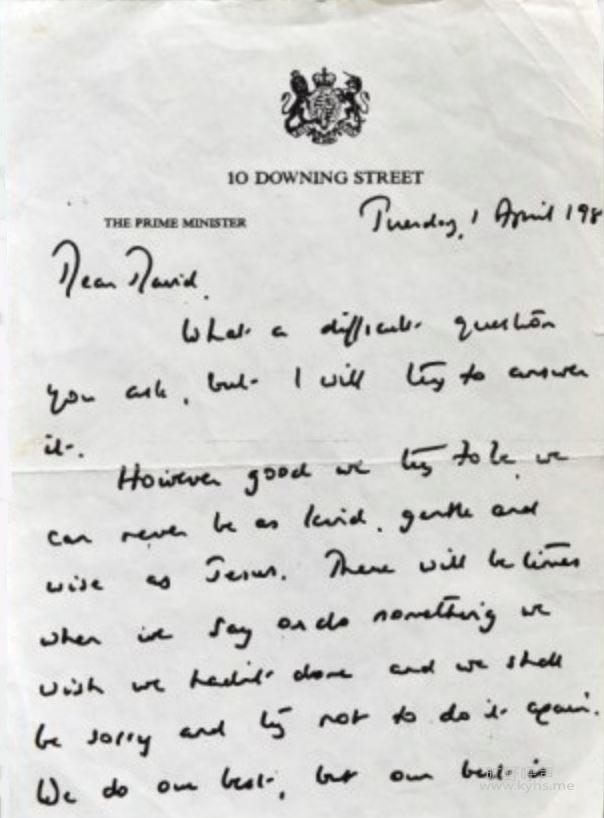 10 DOWNING STREET
THE PRIME MINISTER
Tuesday, 1 April 198
Dear David,
What a difficult question
you ask, but I will try to answer
it.
However good we try to be, we
can never be as kind, gentle and
wise as Jesus. There will be times
when we say or do something we
wish we hadn't done and we shall
be sorry and try not to do it again.
We do our best, but our best is
www.kyhs.me